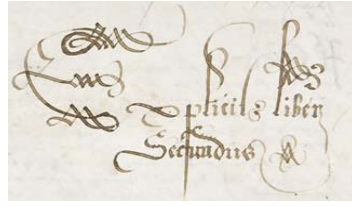 Explicit liber
Secundus